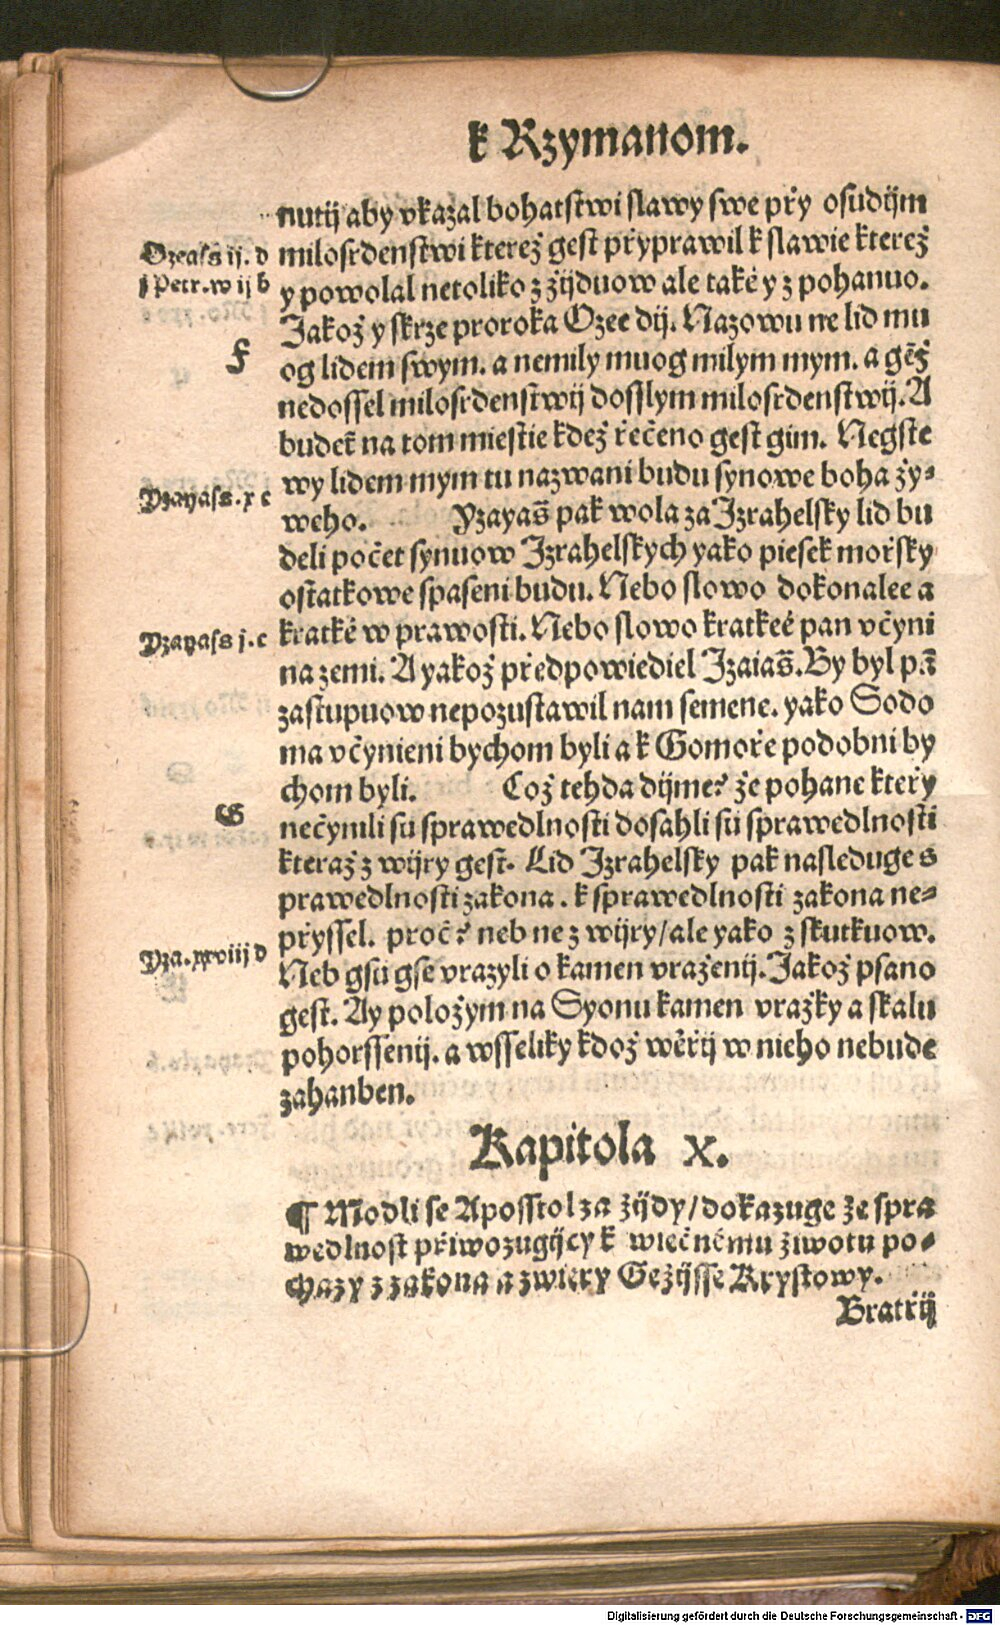 k Rzymanom.
nutij aby vkazal bohatstwi slawy swe přy osudijm
Ozeass ij. d
milosrdenstwi kterež gest přyprawil k slawie kterež
j Petr. w ij b
y powolal netoliko z žijduow ale také y z pohanuo.
Jakož y skrze proroka Ozee dij. Nazowu ne lid mu
f
og lidem swym. a nemily muog milym mym. a gēž
nedossel milosrdenstwij dosslym milosrdenstwij. A
budet na tom miestie kdež řečeno gest gim. Negste
wy lidem mym tu nazwani budu synowe boha ży-
Yzayass. x c
weho. Yzayas̄ pak wola za Izrahelsky lid bu
deli počet synuow Izrahelskych yako piesek mořsky
ostatkowe spaseni budu. Nebo slowo dokonalee a
Yzayass j. c
kratké w prawosti. Nebo slowo kratkeé pan včyni
na zemi. A yakož předpowiediel Izaias̄. By byl p.ā
zastupuow nepozustawil nam semene. yako Sodo
ma včynieni bychom byli a k Gomoře podobni by
chom byli. Což tehda dijme? že pohane kteřy
G
nečynili su sprawedlnosti dosahli sú sprawedlnosti
kteraž z wijry gest. Lid Izrahelsky pak nasleduge s
prawedlnosti zakona. k sprawedlnosti zakona ne-
přyssel. proč? neb ne z wijry/ale yako z skutkuow.
Yza. xxviij d
Neb gsú gse vrazyli o kamen vraženij. Jakož psano
gest. Ay položym na Syonu kamen vražky a skalu
pohorssenij. a wsseliky kdož wěřij w nieho nebude
zahanben.
Kapitola X.
¶ Modli se Aposstol za žijdy/dokazuge že spra
wedlnost přiwozugijcy k wiečnému životu po-
chazy z zakona a z wiery Gežijsse Krystowy.
Bratřij
Digitalisierung gefördert durch die Deutsche Forschungsgemeinschaft - DFG